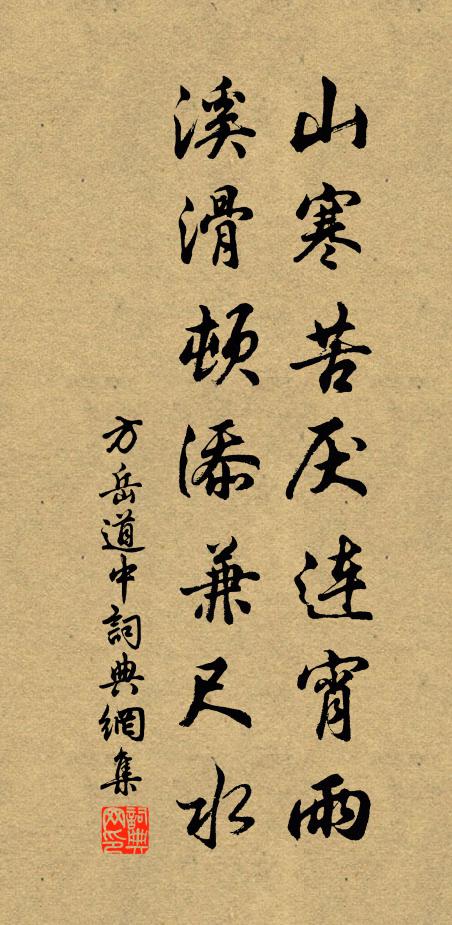 山寒苦厌连宵雨
溪滑顿添兼尺水
方岳道中詞典網集
詞典网印